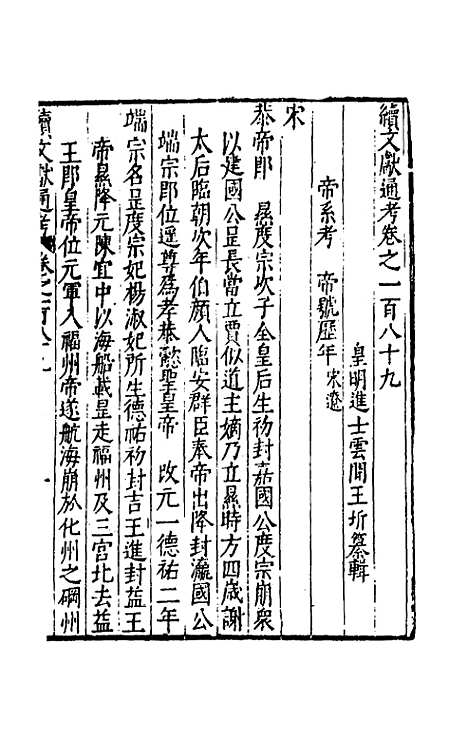 續文獻通考卷之一百八十九
皇明進士雲間王圻纂輯
帝系考　帝號歷年 宋遼
宋
恭帝即　㬎度宗次子全皇后生初封嘉國公度宗崩衆
以建國公昰長當立賈似道主嫡乃立㬎時方四歲謝
太后臨朝次年伯顏入臨安群臣奉帝出降封瀛國公
端宗即位遥尊為孝恭懿聖皇帝　改元一德祐二年
端宗名昰度宗妃楊淑妃所生德祐初封吉王進封益王
帝㬎降元陳宜中以海船載昰走福州及三宮北去益
王即皇帝位元軍入福州帝遂航海崩於化州之碙州
續文獻通考 卷之一百八十九　一